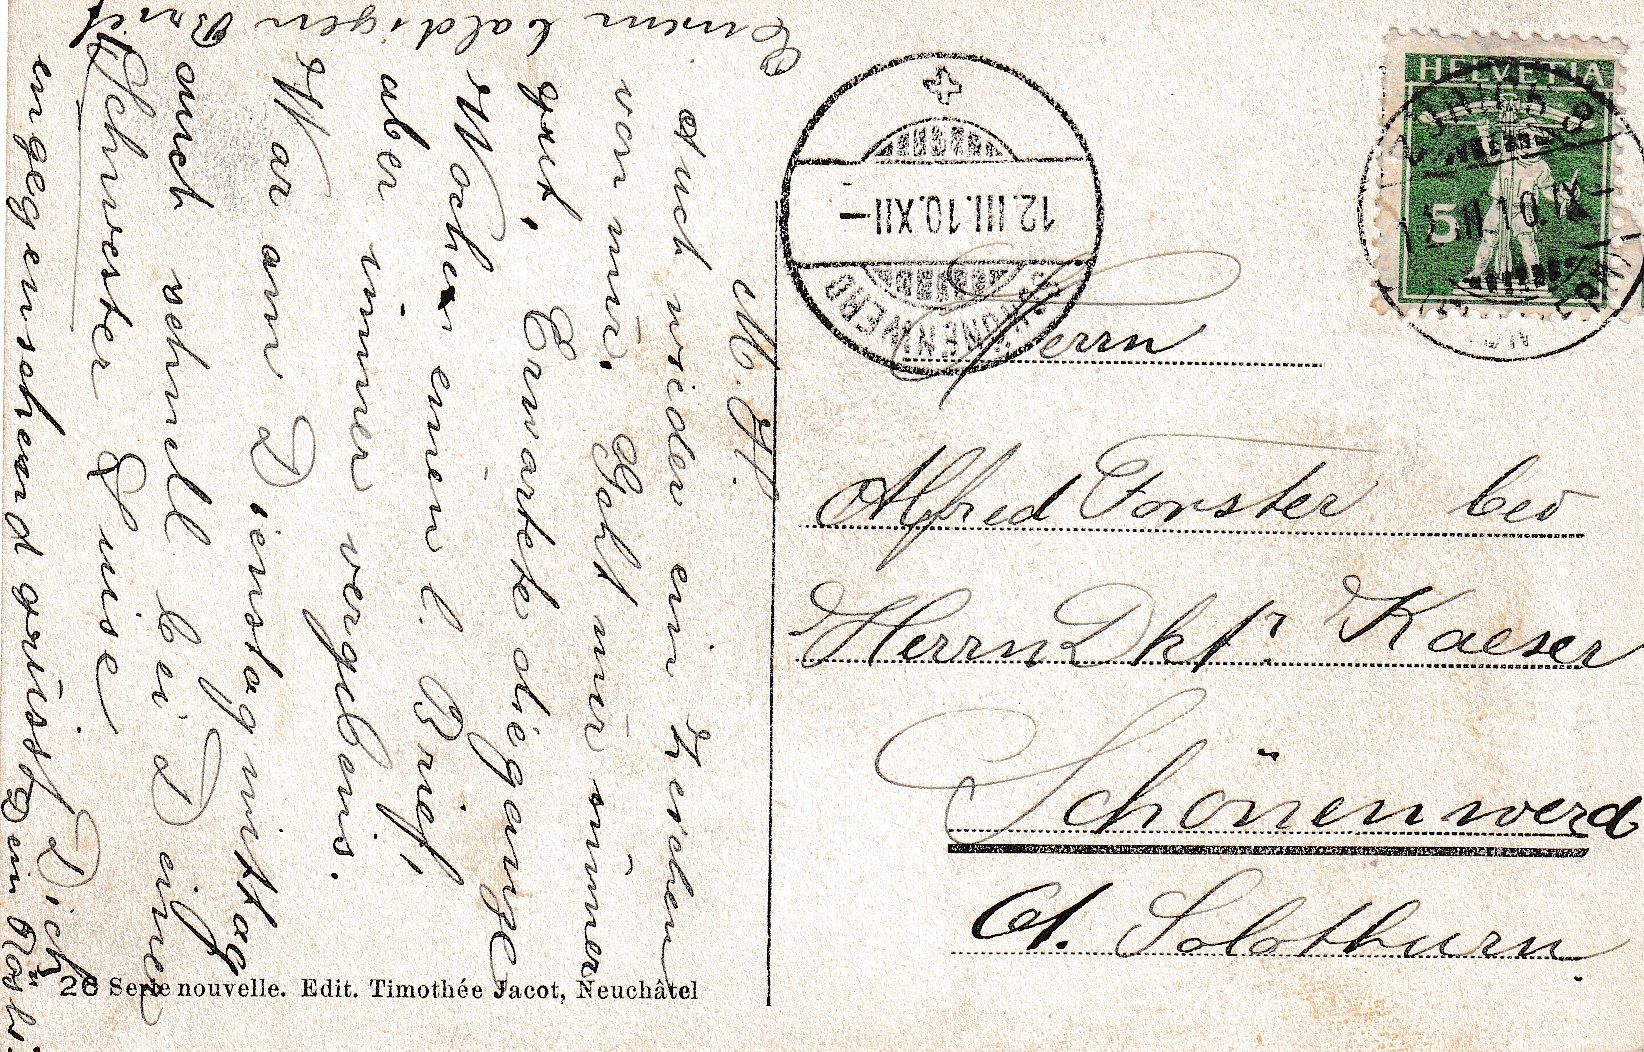 M. H.
Auch wieder ein Zeichen
von mir. Geht mir immer
gut, Erwartete die ganze
Woche einen l. Brief,
aber immer vergebens.
War am Dienstagmittag
auch schnell bei Deiner
Schwester Luise
Einem baldigen Brief
entgegensehend grüsst Dich
Dein Rösli
Herrn
Alfred Forster bei
Herrn Dktr Kaeser
Schönenwerd
Ct. Solothurn
HELVETIA
5
12.III.10.XII–
SCHÖNENWERD
10.IX
26 Serie nouvelle. Edit. Timothée Jacot, Neuchâtel